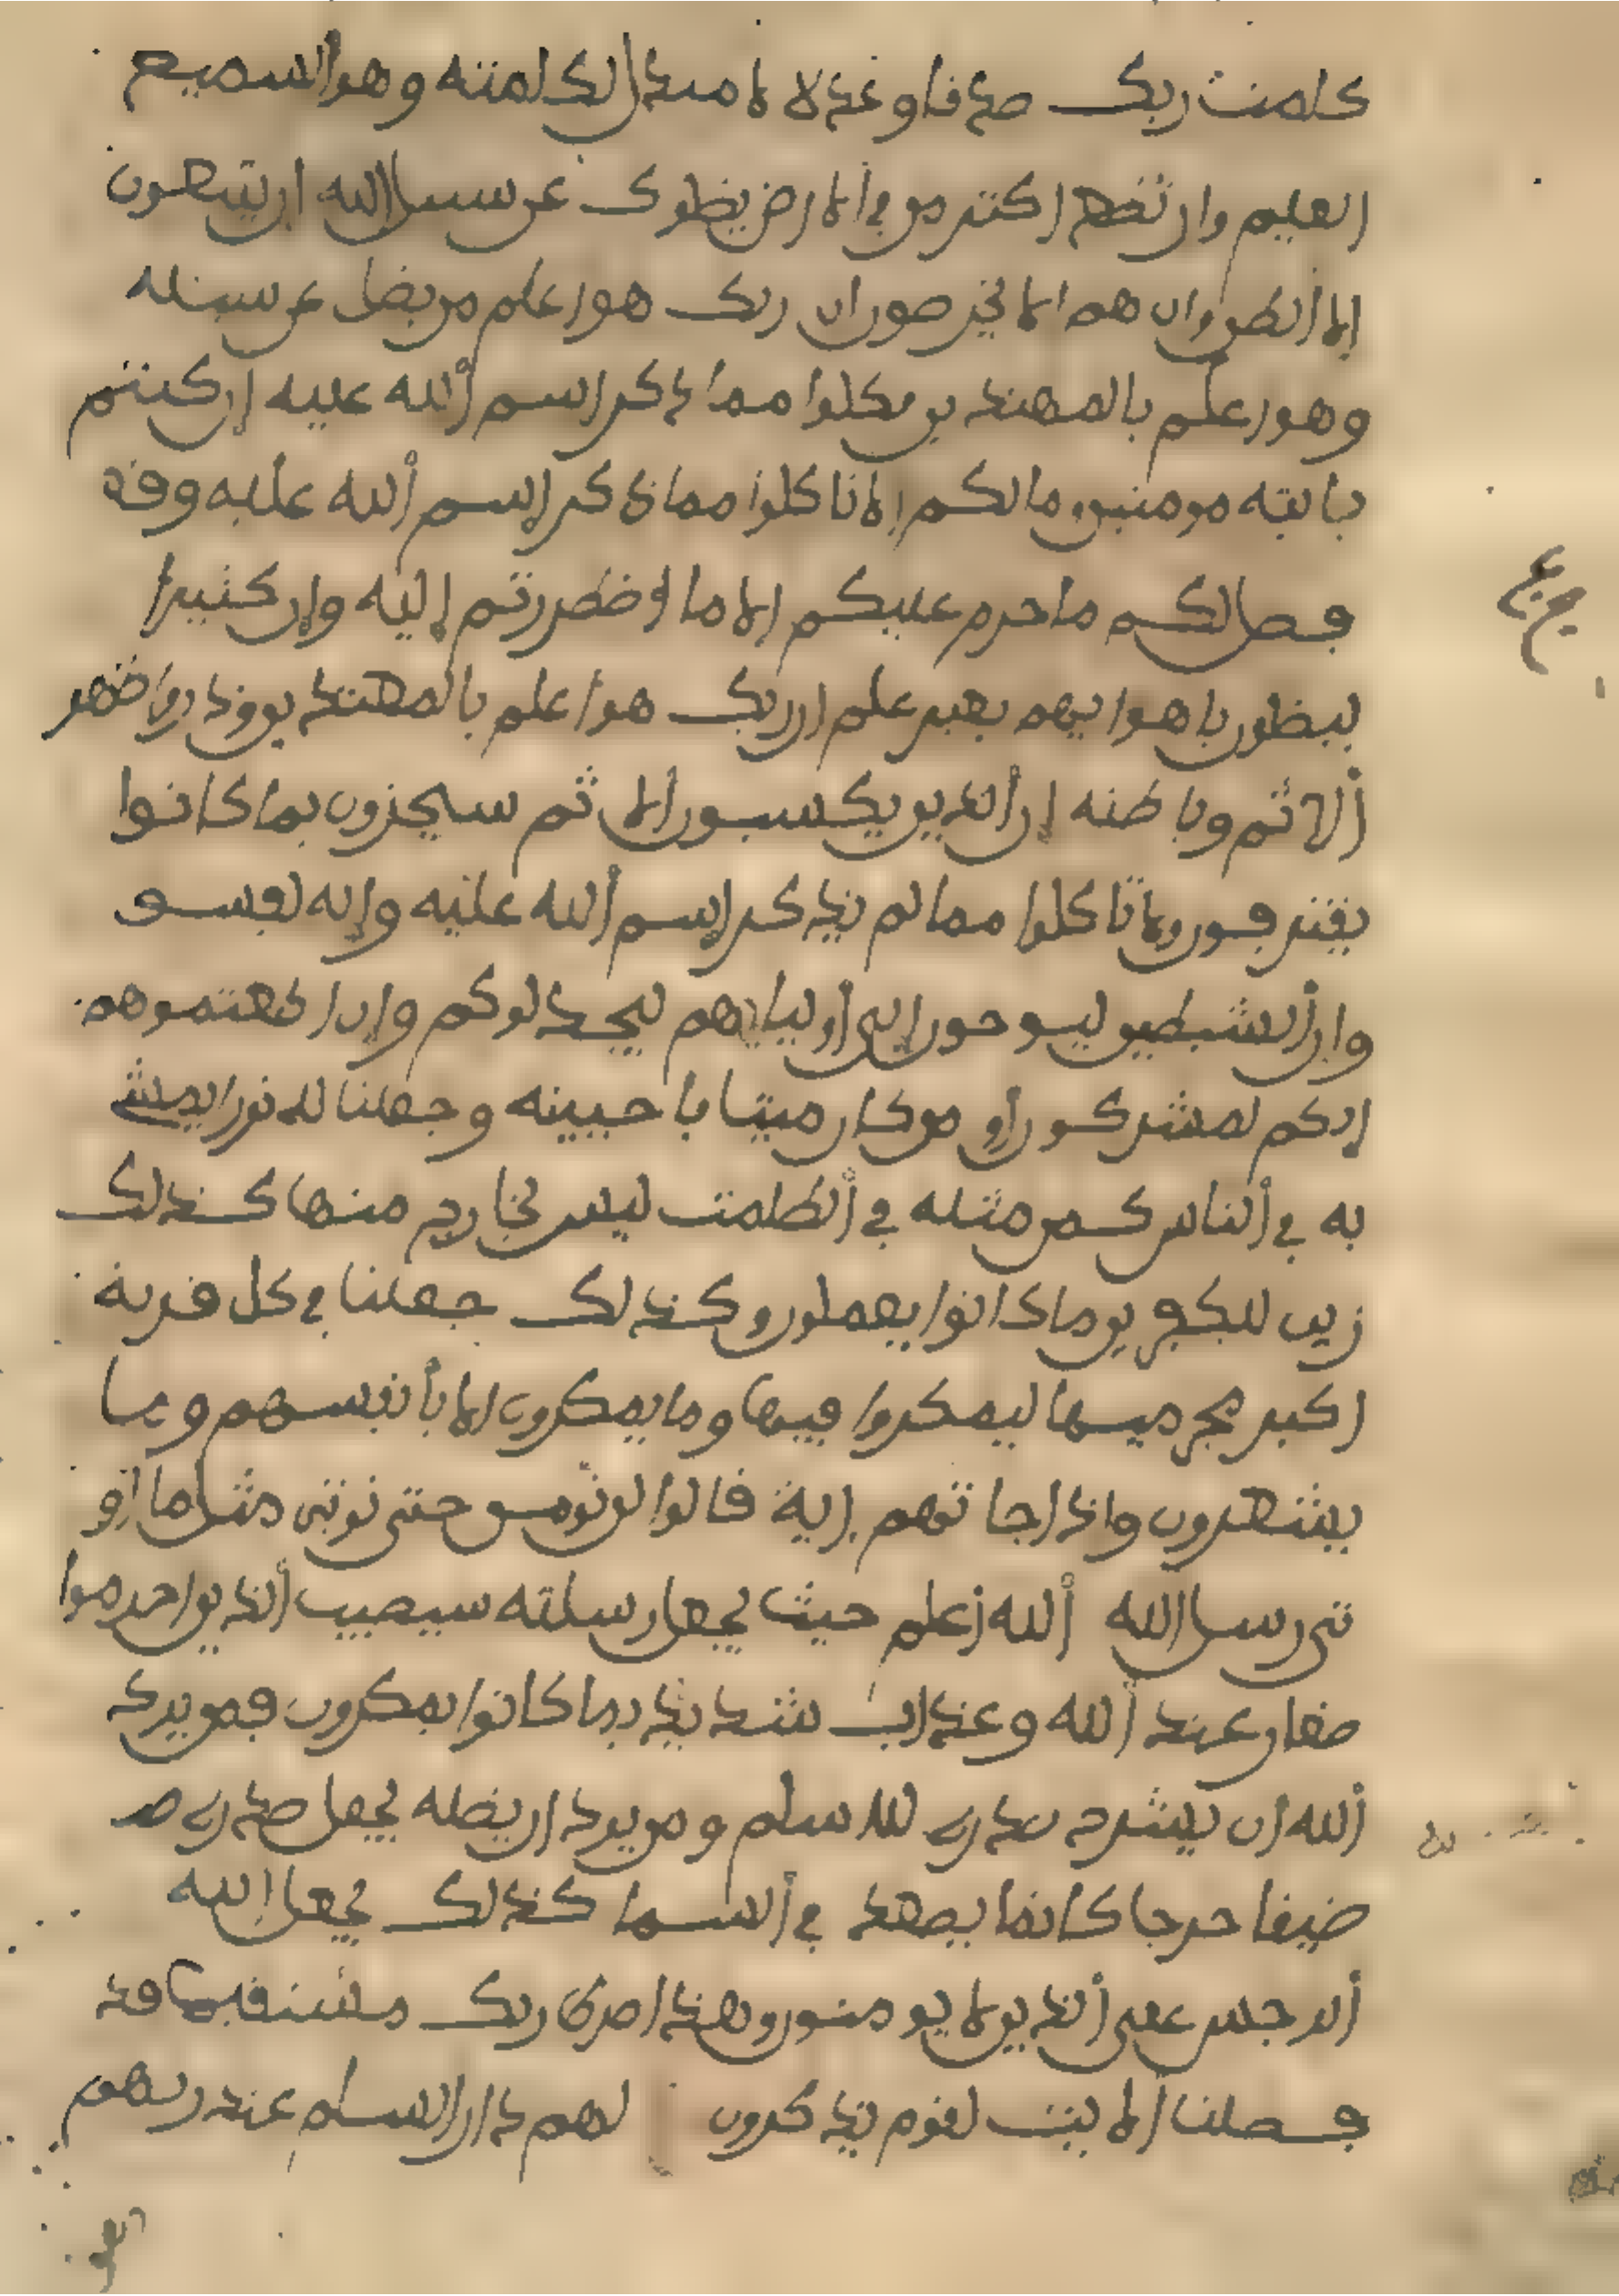 كلمت ربك صدفا وعدلا لا مبدل لكلمته وهو السميع
العليم وان تطع اكثر من في الارض يضلوك عن سبيل الله ان يتبعون
الا الظن وان هم الا يخرصون ان ربك هو اعلم من يضل عن سبيله
وهو اعلم بالمهتدين فكلوا مما ذكر اسم الله عليه إن كنتم
بايته مومنين وما لكم إلا تاكلوا مما ذكر إسم الله عليه وقد
فصل لكم ما حرم عليكم إلا ما اضطررتم إليه وإن كثيرا
ليضلون باهوايهم بغير علم ان ربك هو اعلم بالمهتدين وذروا ظهر
ألاثم وباطنه إن ألذين يكسبون ألاثم سيجزون بما كانوا
يقترفون ولا تاكلوا مما لم يذكر إسم ألله عليه وإنه لفسق
وإن ألشيطين ليوحون إلى أوليايهم ليجدلوكم وإن اطعتموهم
إنكم لمشركون أو من كان ميتا فاحيينه وجعلنا له نورا يمشي
به في ألناس كمن مثله في ألظلمت ليس بخارج منها كذلك
زين للكفرين ما كانوا يعملون وكذلك جعلنا في كل قرية
اكبر مجرميها ليمكروا فيها وما يمكرون إلا بأنفسهم وما
يشعرون واذا جاتهم اية قالوا لن نومن حتى نوتى مثل ما او
تي رسل الله ألله أعلم حيث يجعل رسلته سيصيب ألذين اجرموا
صغار عند ألله وعذاب شديد بما كانوا يمكرون فمن يرد
ألله ان يشرح صدره للاسلم ومن يرد ان يضله يجعل صدره
ضيقا حرجا كانما يصعد في ألسما كذلك يجعل الله
ألرجس على ألذين لا يومنون وهذا صرط ربك مستقيما قد
فصلنا ألايت لقوم يذكرون لهم دار السلم عند ربهم